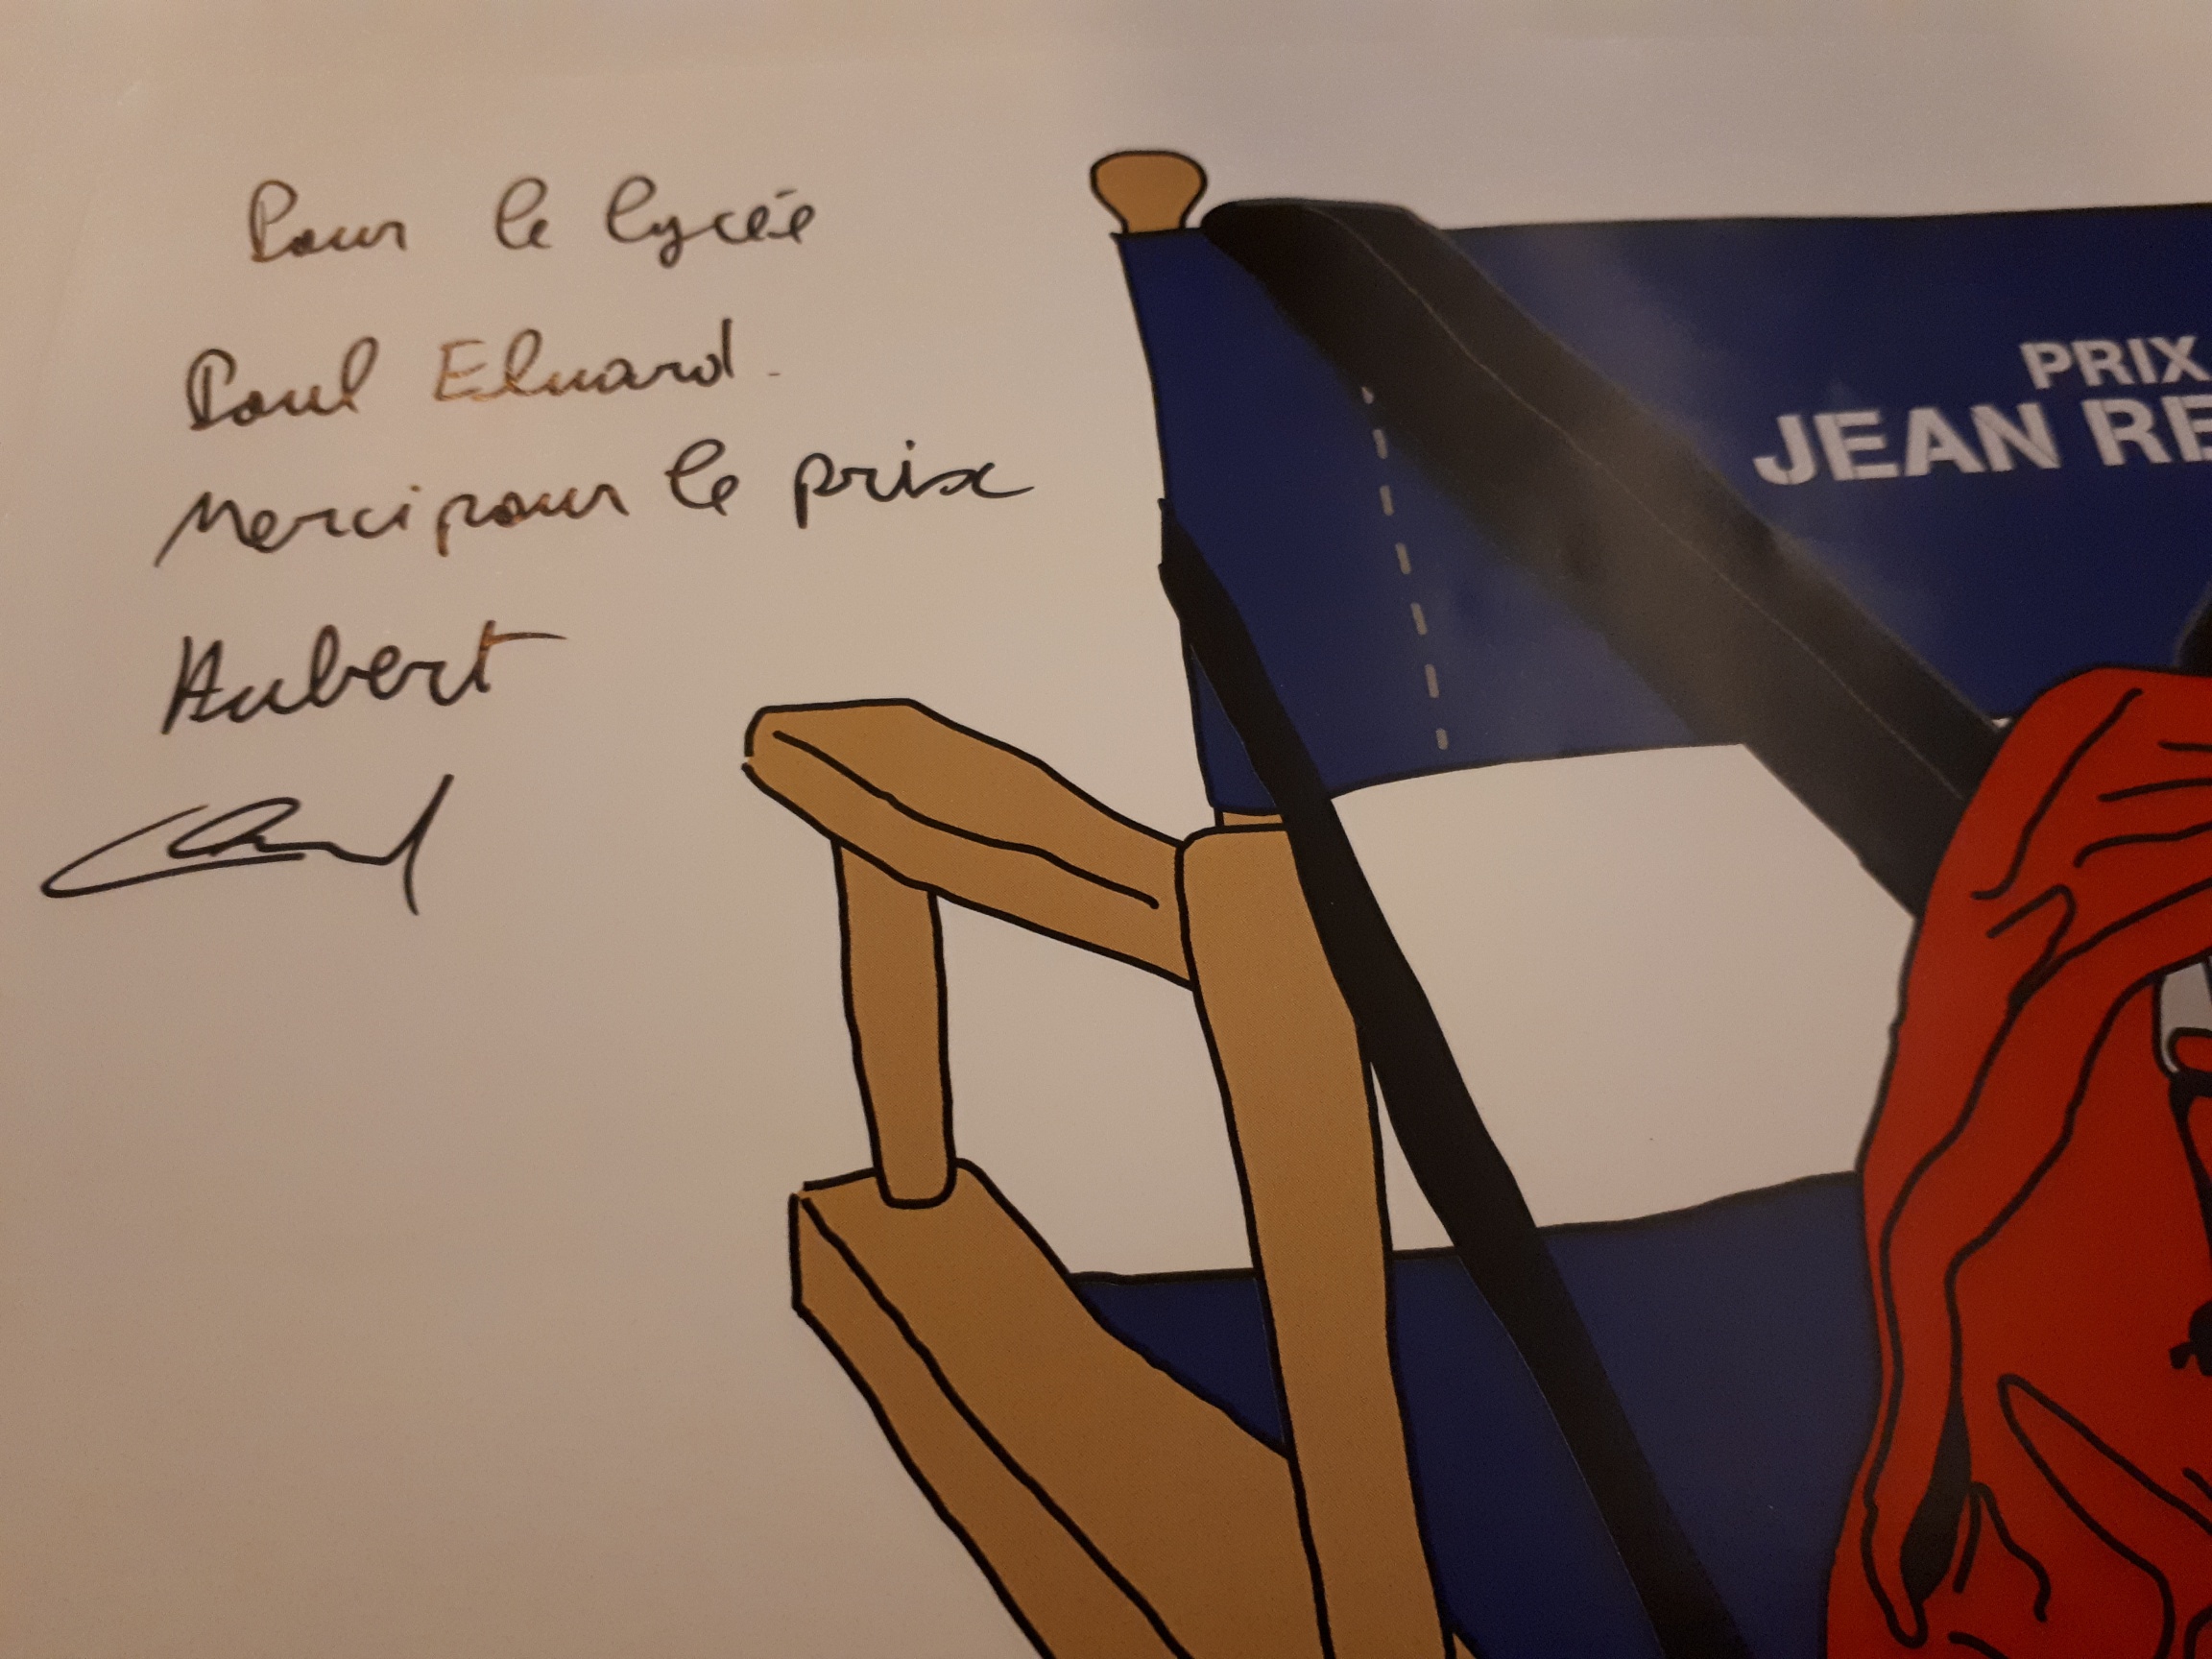 Pour le lycée
Paul Eluard.
Merci pour le prix
Hubert
PRIX
JEAN RE